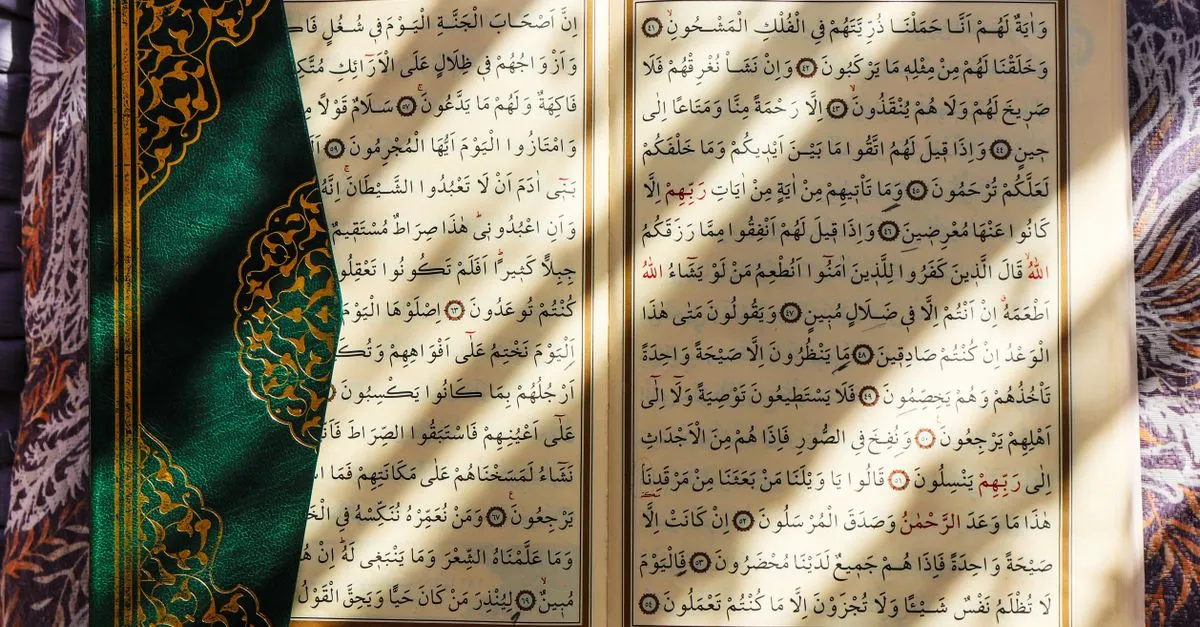 وَاٰيَةٌ لَهُمْ اَنَّا حَمَلْنَا ذُرِّيَّتَهُمْ فِي الْفُلْكِ الْمَشْحُونِۙ ٤١
وَخَلَقْنَا لَهُمْ مِنْ مِثْلِه۪ مَا يَرْكَبُونَ ٤٢ وَاِنْ نَشَأْ نُغْرِقْهُمْ فَلَا
صَر۪يخَ لَهُمْ وَلَا هُمْ يُنْقَذُونَۙ ٤٣ اِلَّا رَحْمَةً مِنَّا وَمَتَاعًا اِلٰى
ح۪ينٍ ٤٤ وَاِذَا ق۪يلَ لَهُمُ اتَّقُوا مَا بَيْنَ اَيْد۪يكُمْ وَمَا خَلْفَكُمْ
لَعَلَّكُمْ تُرْحَمُونَ ٤٥ وَمَا تَأْت۪يهِمْ مِنْ اٰيَةٍ مِنْ اٰيَاتِ رَبِّهِمْ اِلَّا
كَانُوا عَنْهَا مُعْرِض۪ينَ ٤٦ وَاِذَا ق۪يلَ لَهُمْ اَنْفِقُوا مِمَّا رَزَقَكُمُ
اللّٰهُۙ قَالَ الَّذ۪ينَ كَفَرُوا لِلَّذ۪ينَ اٰمَنُٓوا اَنُطْعِمُ مَنْ لَوْ يَشَٓاءُ اللّٰهُ
اَطْعَمَهُۗ اِنْ اَنْتُمْ اِلَّا ف۪ي ضَلَالٍ مُب۪ينٍ ٤٧ وَيَقُولُونَ مَتٰى هٰذَا
الْوَعْدُ اِنْ كُنْتُمْ صَادِق۪ينَ ٤٨ مَا يَنْظُرُونَ اِلَّا صَيْحَةً وَاحِدَةً
تَأْخُذُهُمْ وَهُمْ يَخِصِّمُونَ ٤٩ فَلَا يَسْتَط۪يعُونَ تَوْصِيَةً وَلَٓا اِلٰٓى
اَهْلِهِمْ يَرْجِعُونَ ٥٠ وَنُفِخَ فِي الصُّورِ فَاِذَا هُمْ مِنَ الْاَجْدَاثِ
اِلٰى رَبِّهِمْ يَنْسِلُونَ ٥١ قَالُوا يَا وَيْلَنَا مَنْ بَعَثَنَا مِنْ مَرْقَدِنَا
هٰذَا مَا وَعَدَ الرَّحْمٰنُ وَصَدَقَ الْمُرْسَلُونَ ٥٢ اِنْ كَانَتْ اِلَّا
صَيْحَةً وَاحِدَةً فَاِذَا هُمْ جَم۪يعٌ لَدَيْنَا مُحْضَرُونَ ٥٣ فَالْيَوْمَ
لَا تُظْلَمُ نَفْسٌ شَيْـًٔا وَلَا تُجْزَوْنَ اِلَّا مَا كُنْتُمْ تَعْمَلُونَ ٥٤
اِنَّ اَصْحَابَ الْجَنَّةِ الْيَوْمَ ف۪ي شُغُلٍ
وَاَزْوَاجُهُمْ ف۪ي ظِلَالٍ عَلَى الْاَرَٓائِكِ
فَاكِهَةٌ وَلَهُمْ مَا يَدَّعُونَۚ ٥٧ سَلَامٌ قَوْلًا
وَامْتَازُوا الْيَوْمَ اَيُّهَا الْمُجْرِمُونَ ٥٩
بَن۪ٓي اٰدَمَ اَنْ لَا تَعْبُدُوا الشَّيْطَانَۚ اِنَّهُ
وَاَنِ اعْبُدُون۪يۜ هٰذَا صِرَاطٌ مُسْتَق۪يمٌ
جِبِلًّا كَث۪يرًاۜ اَفَلَمْ تَكُونُوا
كُنْتُمْ تُوعَدُونَ ٦٣ اِصْلَوْهَا الْيَوْمَ
اَلْيَوْمَ نَخْتِمُ عَلٰٓى اَفْوَاهِهِمْ
اَرْجُلُهُمْ بِمَا كَانُوا يَكْسِبُونَ
عَلٰٓى اَعْيُنِهِمْ فَاسْتَبَقُوا الصِّرَاطَ
نَشَٓاءُ لَمَسَخْنَاهُمْ عَلٰى مَكَانَتِهِمْ فَمَا
يَرْجِعُونَ۟ ٦٧ وَمَنْ نُعَمِّرْهُ نُنَكِّسْهُ فِي
وَمَا عَلَّمْنَاهُ الشِّعْرَ وَمَا يَنْبَغ۪ي لَهُۜ اِنْ
مُب۪ينٌۙ ٦٩ لِيُنْذِرَ مَنْ كَانَ حَيًّا وَيَحِقَّ الْقَوْلُ